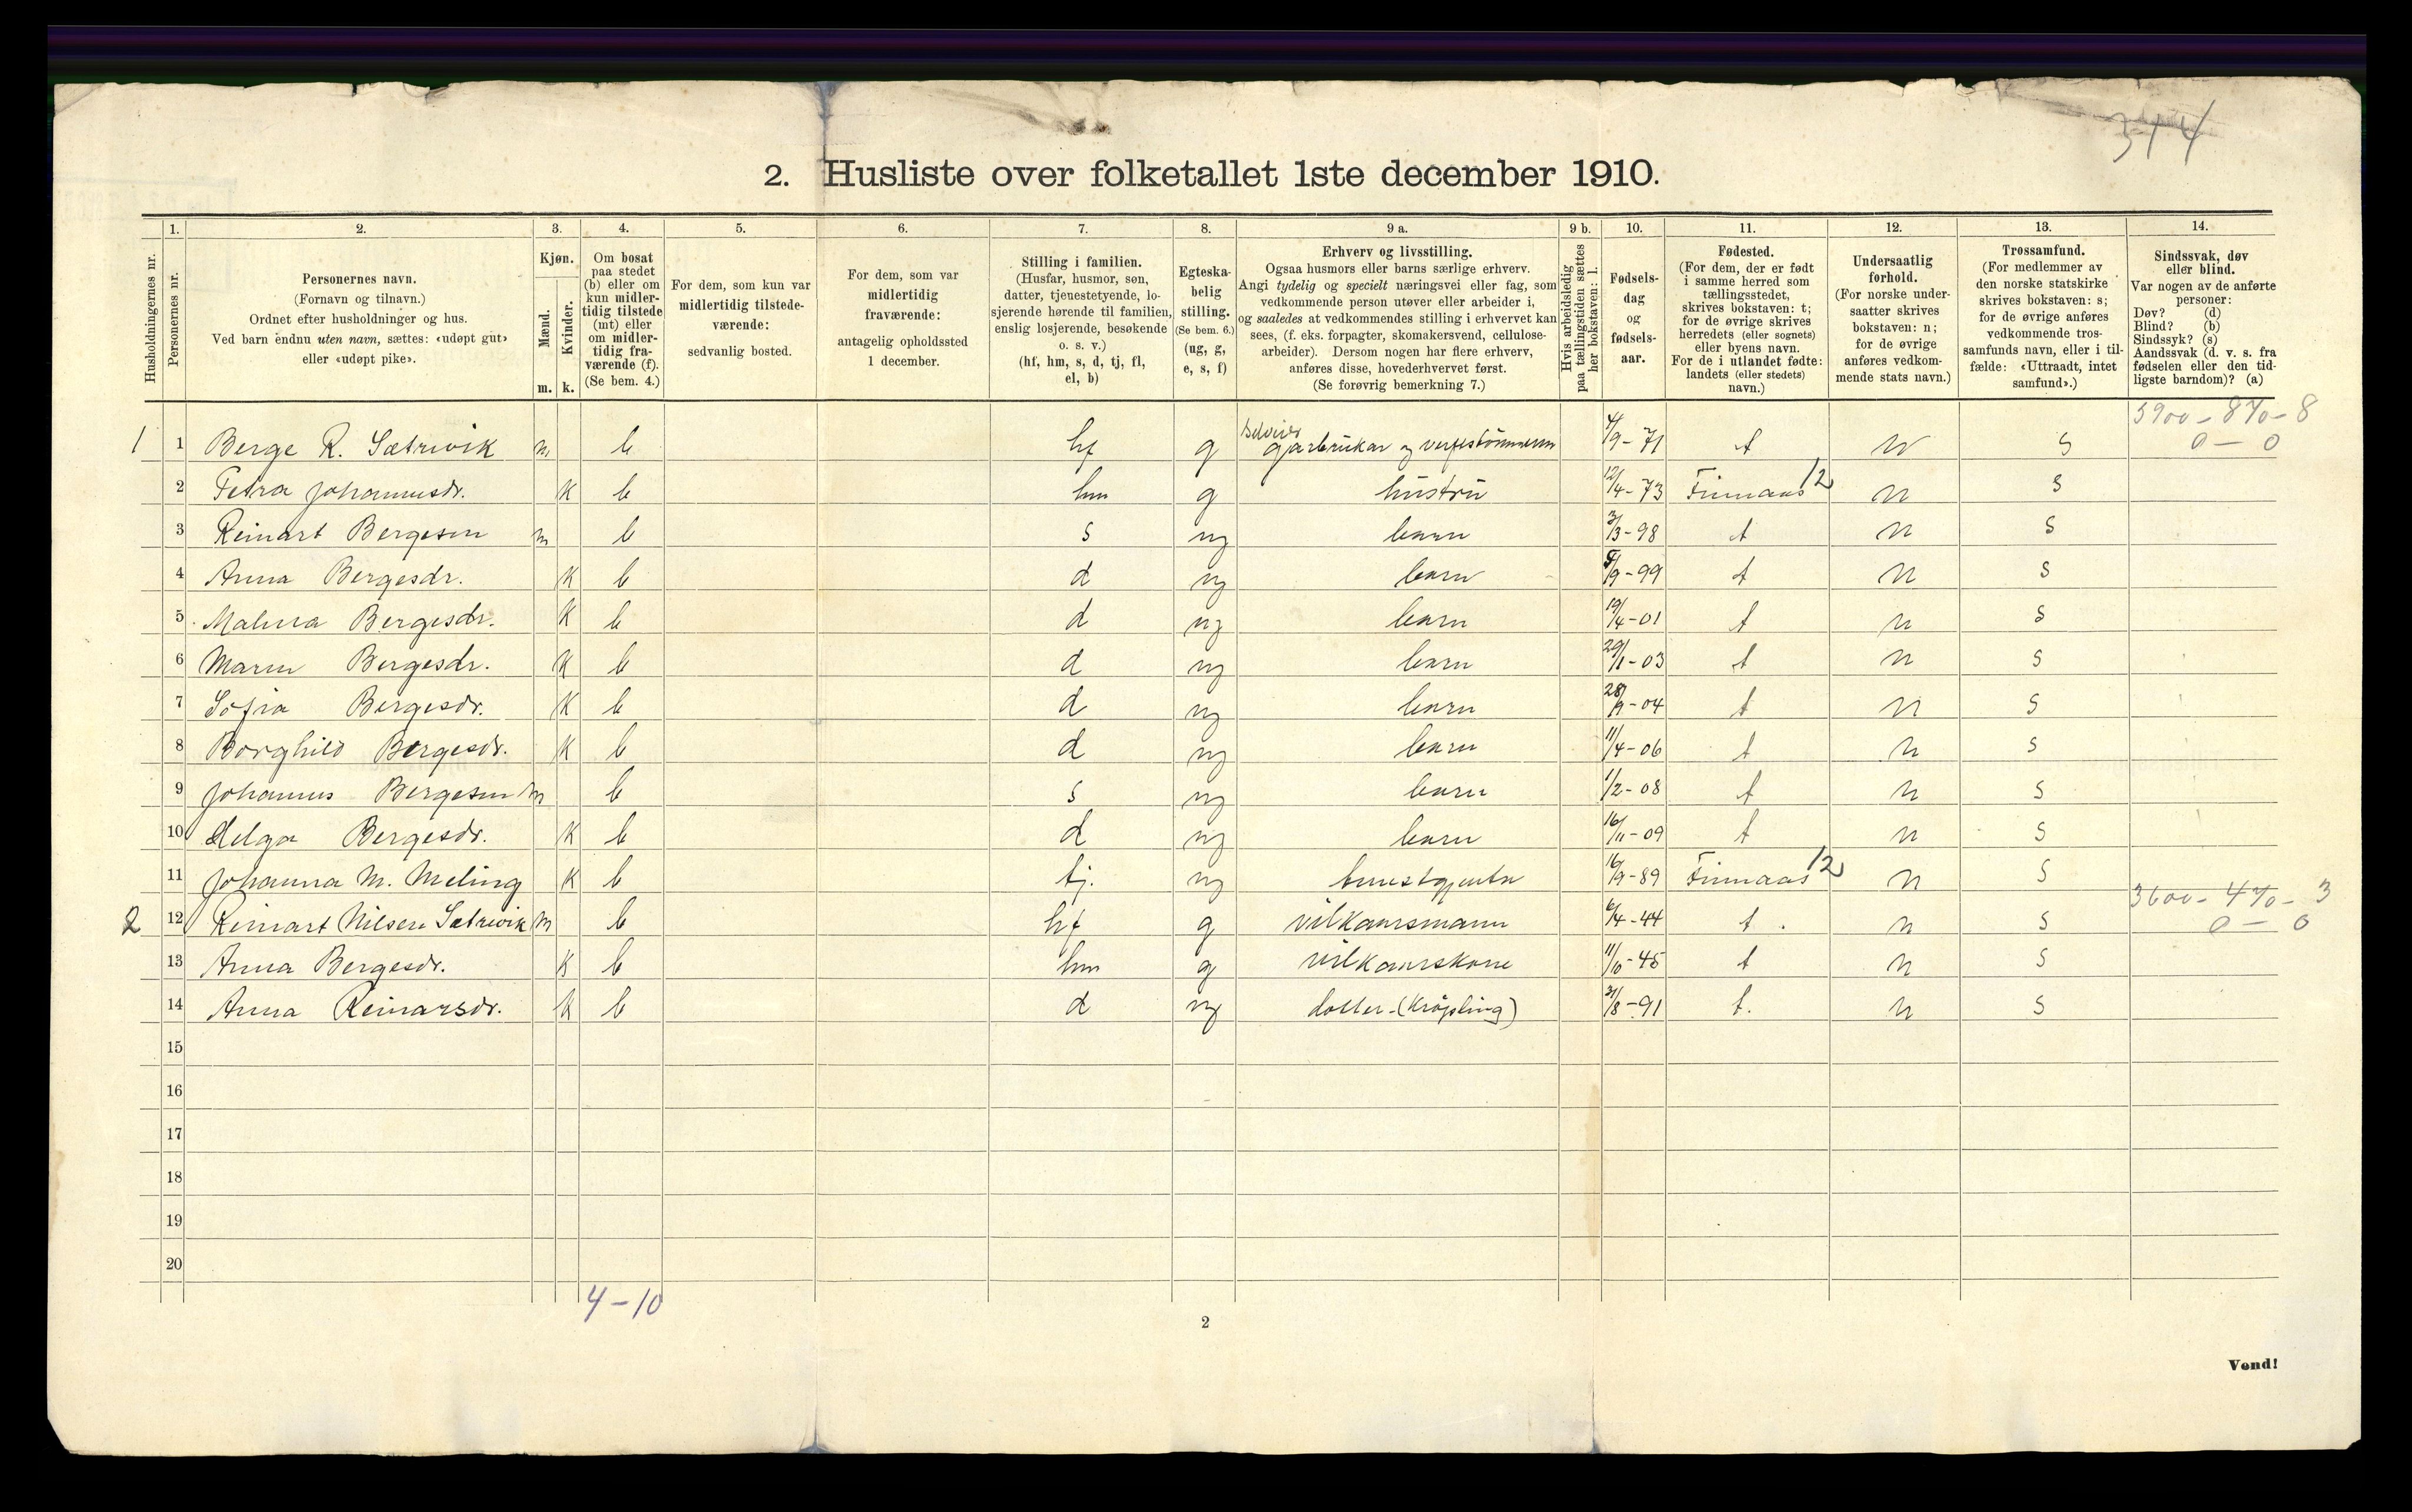 344
2. Husliste over folketallet 1ste december 1910.
Husholdningernes nr.
1.
Personernes nr.
2.
Personernes navn.
(Fornavn og tilnavn.)
Ordnet efter husholdninger og hus.
Ved barn endnu uten navn, sættes: «udøpt gut»
eller «udøpt pike».
3.
Kjøn.
Mænd.
m.
Kvinder.
k.
4.
Om bosat
paa stedet
(b) eller om
kun midler-
tidig tilstede
(mt) eller
om midler-
tidig fra-
værende (f).
(Se bem. 4.)
5.
For dem, som kun var
midlertidig tilstede-
værende:
sedvanlig bosted.
6.
For dem, som var
midlertidig
fraværende:
antagelig opholdssted
1 december.
7.
Stilling i familien.
(Husfar, husmor, søn,
datter, tjenestetyende, lo-
sjerende hørende til familien,
enslig losjerende, besøkende
o. s. v.)
(hf, hm, s, d, tj, fl,
el, b)
8.
Egteska-
belig
stilling.
(Se bem. 6.)
(ug, g,
e, s, f)
9 a.
Erhverv og livsstilling.
Ogsaa husmors eller barns særlige erhverv.
Angi tydelig og specielt næringsvei eller fag, som
vedkommende person utøver eller arbeider i,
og saaledes at vedkommendes stilling i erhvervet kan
sees, (f. eks. forpagter, skomakersvend, cellulose-
arbeider). Dersom nogen har flere erhverv,
anføres disse, hovederhvervet først.
(Se forøvrig bemerkning 7.)
9 b.
Hvis arbeidsledig
paa tællingstiden sættes
her bokstaven: l.
10.
Fødsels-
dag
og
fødsels-
aar.
11.
Fødested.
(For dem, der er født
i samme herred som
tællingsstedet,
skrives bokstaven: t;
for de øvrige skrives
herredets (eller sognets)
eller byens navn.
For de i utlandet fødte:
landets (eller stedets)
navn.)
12.
Undersaatlig
forhold.
(For norske under-
saatter skrives
bokstaven: n;
for de øvrige
anføres vedkom-
mende stats navn.)
13.
Trossamfund.
(For medlemmer av
den norske statskirke
skrives bokstaven: s;
for de øvrige anføres
vedkommende tros-
samfunds navn, eller i til-
fælde: «Uttraadt, intet
samfund».)
14.
Sindssvak, døv
eller blind.
Var nogen av de anførte
personer:
Døv? (d)
Blind? (b)
Sindssyk? (s)
Aandssvak (d. v. s. fra
fødselen eller den tid-
ligste barndom)? (a)
5900 - 870 - 8
0 — 0
1 1 Berge R. Sætrevik m b hf g selveier garbrukar og 4/9-71 t n s
2 Petra Johannesdr. k b hm g hustru 12/4-73 Finnaas 12 n s
3 Reinart Bergesen m b s ug barn 3/3-98 t n s
4 Anna Bergesdr. k b d ug barn 5/9-99 t n s
5 Malena Bergesdr. k b d ug barn 19/4-01 t n s
6 Maren Bergesdr. k b d ug barn 29/1-03 t n s
7 Sofia Bergesdr. k b d ug barn 28/9-04 t n s
8 Borghild Bergesdr. k b d ug barn 11/4-06 t n s
9 Johannes Bergesen m b s ug barn 1/2-08 t n s
10 Helga Bergesdr. k b d ug barn 16/11-09 t n s
11 Johanna M. Meling k b tj. ug tenestgjenta 16/9-89 Finnaas 12 n s
3600 - 470 - 3
0 — 0
2 12 Reinart Nilsen Sætrevik m b hf g vilkaarsmann 6/4-44 t. n s
13 Anna Bergesdr. k b hm g vilkaarskone 11/10-45 t n s
14 Anna Reinarsdr. k b d ug dotter-(Krøpling) 31/8-91 t. n s
15
16
17
18
19
20
4-10
2
Vend!